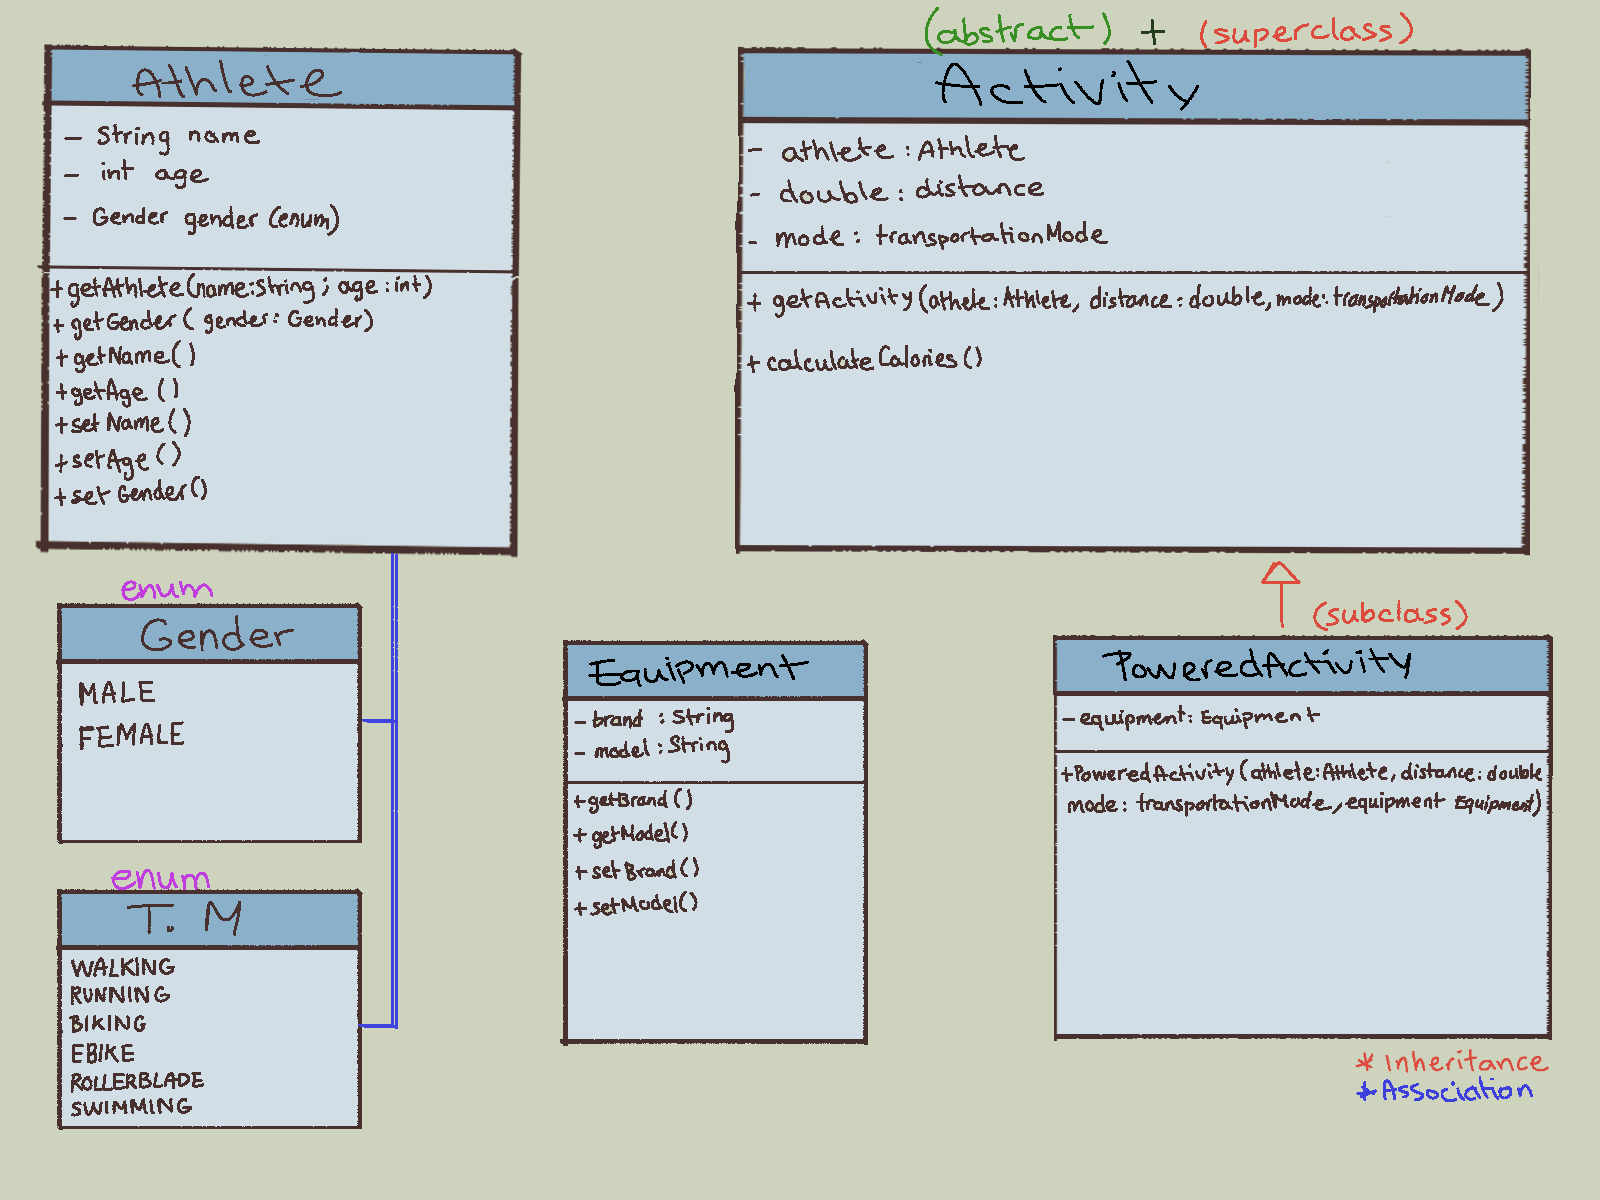 Athlete
- String name
- int age
- Gender gender (enum)
+getAthlete(name:String; age:int)
+getGender( gender: Gender)
+getName()
+getAge ()
+set Name()
+setAge ()
+set Gender()
(abstract) + (superclass)
Activity
- athlete : Athlete
- double : distance
- mode : transportationMode
+ getActivity(athele:Athlete, distance:double, mode:transportationMode)
+ calculate Calories()
enum
Gender
MALE
FEMALE
enum
T. M
WALKING
RUNNING
BIKING
EBIKE
ROLLERBLADE
SWIMMING
Equipment
- brand : String
- model : String
+getBrand()
+ getModel()
+ setBrand()
+setModel()
(subclass)
PoweredActivity
- equipment: Equipment
+PoweredActivity (athlete:Athlete, distance:double
mode: transportationMode, equipment Equipment)
* Inheritance
* Association